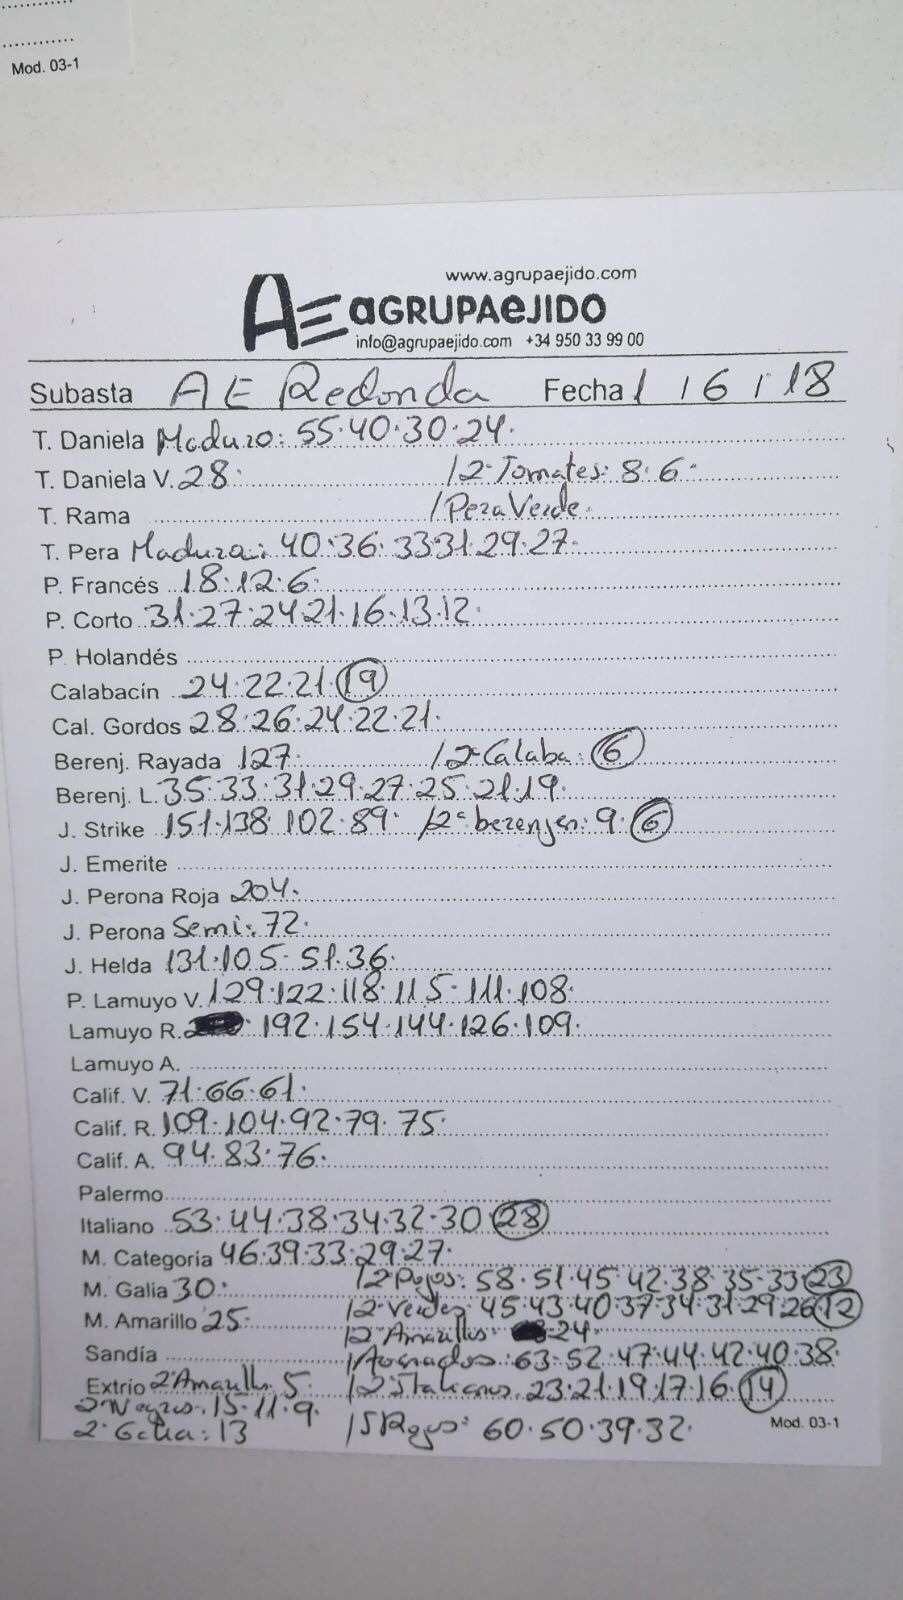 Mod. 03-1
www.agrupaejido.com
AE aGRUPAeJIDO
info@agrupaejido.com +34 950 33 99 00
Subasta AE Redonda Fecha 1 / 6 / 18
T. Daniela Maduro: 55·40·30·24·
T. Daniela V. 28· /2ª Tomates: 8·6·
T. Rama /Pera Verde·
T. Pera Madura: 40·36·33·31·29·27·
P. Francés 18·12·6·
P. Corto 31·27·24·21·16·13·12·
P. Holandés
Calabacín 24·22·21·19
Cal. Gordos 28·26·24·22·21·
Berenj. Rayada 127· /2ª Calaba: 6
Berenj. L. 35·33·31·29·27·25·21·19·
J. Strike 151·138·102·89· /2ª berenjen: 9·6
J. Emerite
J. Perona Roja 204·
J. Perona Semi: 72·
J. Helda 131·105·51·36·
P. Lamuyo V. 129·122·118·115·111·108·
Lamuyo R. 192·154·144·126·109·
Lamuyo A.
Calif. V. 71·66·61·
Calif. R. 109·104·92·79·75·
Calif. A. 94·83·76·
Palermo
Italiano 53·44·38·34·32·30·28
M. Categoria 46·39·33·29·27·
M. Galia 30· /2ª Rojos: 58·51·45·42·38·35·33·23
M. Amarillo 25· /2ª Verdes: 45·43·40·37·34·31·29·26·12
/2ª Amarillos: 24·
Sandía /Asurcados: 63·52·47·44·42·40·38
Extrio 2ª Amarill: 5· /2ª Italianos: 23·21·19·17·16·14
2ª Negros: 15·11·9·
2ª Galia: 13 /S Rojos: 60·50·39·32· Mod. 03-1